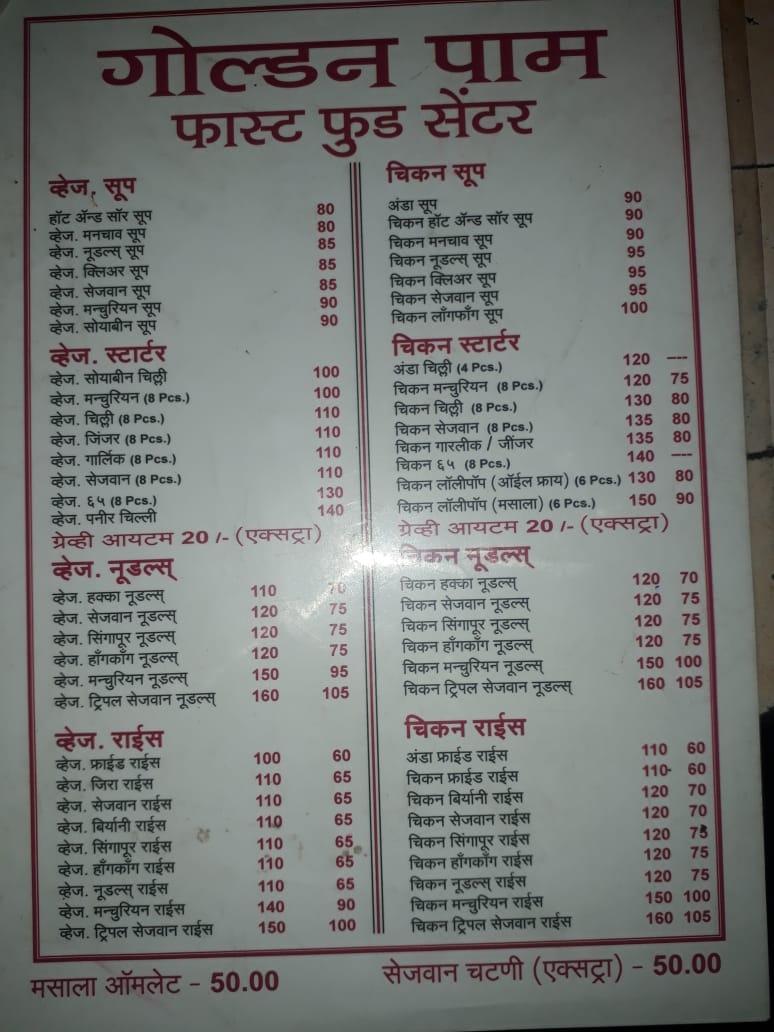 गोल्डन पाम
फास्ट फुड सेंटर
व्हेज. सूप
हॉट ॲन्ड सॉर सूप 80
व्हेज. मनचाव सूप 80
व्हेज. नूडल्स् सूप 85
व्हेज. क्लिअर सूप 85
व्हेज. सेजवान सूप 85
व्हेज. मन्चुरियन सूप 90
व्हेज. सोयाबीन सूप 90
व्हेज. स्टार्टर
व्हेज. सोयाबीन चिल्ली 100
व्हेज. मन्चुरियन (8 Pcs.) 100
व्हेज. चिल्ली (8 Pcs.) 110
व्हेज. जिंजर (8 Pcs.) 110
व्हेज. गार्लिक (8 Pcs.) 110
व्हेज. सेजवान (8 Pcs.) 110
व्हेज. ६५ (8 Pcs.) 130
व्हेज. पनीर चिल्ली 140
ग्रेव्ही आयटम 20 /- (एक्सट्रा)
व्हेज. नूडल्स्
व्हेज. हक्का नूडल्स् 110 70
व्हेज. सेजवान नूडल्स् 120 75
व्हेज. सिंगापूर नूडल्स् 120 75
व्हेज. हाँगकाँग नूडल्स् 120 75
व्हेज. मन्चुरियन नूडल्स् 150 95
व्हेज. ट्रिपल सेजवान नूडल्स् 160 105
व्हेज. राईस
व्हेज. फ्राईड राईस 100 60
व्हेज. जिरा राईस 110 65
व्हेज. सेजवान राईस 110 65
व्हेज. बिर्यानी राईस 110 65
व्हेज. सिंगापूर राईस 110 65
व्हेज. हाँगकाँग राईस 110 65
व्हेज. नूडल्स् राईस 110 65
व्हेज. मन्चुरियन राईस 140 90
व्हेज. ट्रिपल सेजवान राईस 150 100
चिकन सूप
अंडा सूप 90
चिकन हॉट ॲन्ड सॉर सूप 90
चिकन मनचाव सूप 90
चिकन नूडल्स् सूप 95
चिकन क्लिअर सूप 95
चिकन सेजवान सूप 95
चिकन लाँगफाँग सूप 100
चिकन स्टार्टर
अंडा चिल्ली (4 Pcs.) 120 ----
चिकन मन्चुरियन (8 Pcs.) 120 75
चिकन चिल्ली (8 Pcs.) 130 80
चिकन सेजवान (8 Pcs.) 135 80
चिकन गारलीक / जींजर 135 80
चिकन ६५ (8 Pcs.) 140 ----
चिकन लॉलीपॉप (ऑईल फ्राय) (6 Pcs.) 130 80
चिकन लॉलीपॉप (मसाला) (6 Pcs.) 150 90
ग्रेव्ही आयटम 20 /- (एक्सट्रा)
चिकन नूडल्स्
चिकन हक्का नूडल्स् 120 70
चिकन सेजवान नूडल्स् 120 75
चिकन सिंगापूर नूडल्स् 120 75
चिकन हाँगकाँग नूडल्स् 120 75
चिकन मन्चुरियन नूडल्स् 150 100
चिकन ट्रिपल सेजवान नूडल्स् 160 105
चिकन राईस
अंडा फ्राईड राईस 110 60
चिकन फ्राईड राईस 110 60
चिकन बिर्यानी राईस 120 70
चिकन सेजवान राईस 120 70
चिकन सिंगापूर राईस 120 75
चिकन हाँगकाँग राईस 120 75
चिकन नूडल्स् राईस 120 75
चिकन मन्चुरियन राईस 150 100
चिकन ट्रिपल सेजवान राईस 160 105
मसाला ऑमलेट - 50.00
सेजवान चटणी (एक्सट्रा) - 50.00